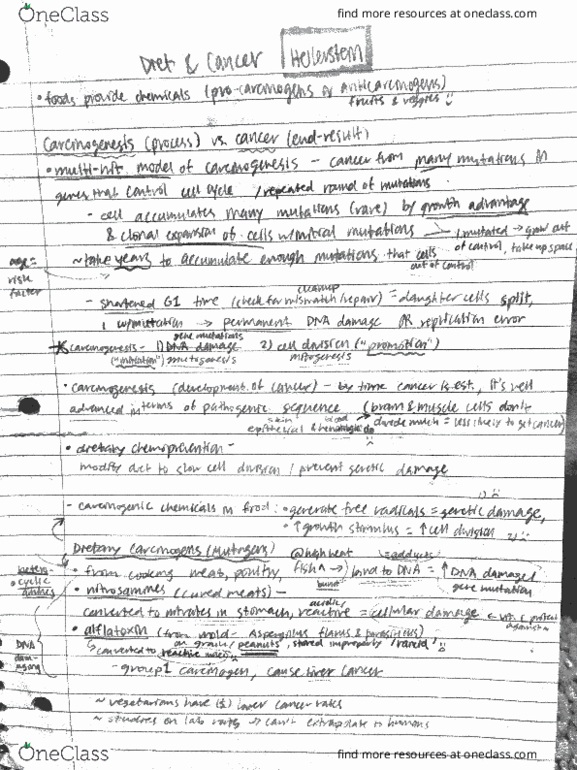 OneClass
find more resources at oneclass.com
Diet & Cancer Hellerstein
• foods provide chemicals (pro-carcinogens or anticarcinogens)
fruits & veggies
Carcinogenesis (process) vs. cancer (end-result)
• multi-hit model of carcinogenesis - cancer from many mutations in
genes that control cell cycle / repeated round of mutations
- cell accumulates many mutations (rare) by growth advantage
& clonal expansion of cells w/ initial mutations 1 mutated → grow out
of control, take up space
age = risk factor
~ take years to accumulate enough mutations that cells
out of control
cleanup
- shortened G1 time (check for mismatch/repair) = daughter cells split,
w/mutation → permanent DNA damage OR replication error
gene mutations
* carcinogenesis - 1) DNA damage 2) cell division ("promotion")
("initiation") mutagenesis mitogenesis
• carcinogenesis (development of cancer) - by time cancer is est., it's well
advanced in terms of pathogenic sequence (brain & muscle cells don't
skin blood
epithelial & divide much = less likely to get cancer)
• dietary chemoprevention -
modify diet to slow cell division / prevent genetic damage
1)
- carcinogenic chemicals in food: • generate free radicals = genetic damage,
• ↑ growth stimulus = ↑ cell division 2)
Dietary Carcinogens (Mutagens) @high heat = adducts
• from cooking meats, poultry, fish → bind to DNA = ↑ DNA damage/
gene mutation
hetero-
cyclic
amines
• nitrosamines (cured meats) -
acidic
converted to nitrates in stomach, reactive = cellular damage ← vit C protect
against
• alflatoxin (from mold - Aspergillus flavus & parasiticus)
on grains/peanuts, stored improperly /rancid
converted to reactive
DNA
dam-
aging
- group 1 carcinogen, cause liver cancer
~ vegetarians have lower cancer rates
~ studies on lab rats → can't extrapolate to humans
OneClass
find more resources at oneclass.com